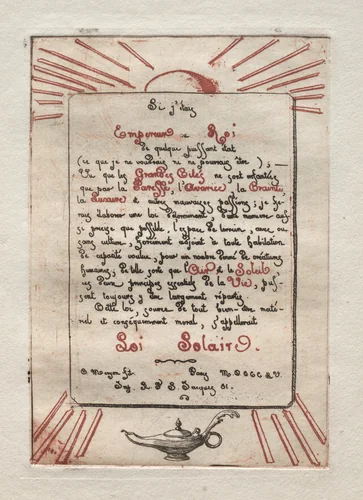 Si j'étais
Empereur ou Roi
de quelque puissant état
(ce que je ne voudrais ni ne pourrais être);—
Vu que les Grandes Cités ne sont enfantées
que par la Paresse, l'Avarice, la Crainte,
la Luxure et autres mauvaises passions; je fe-
rais élaborer une loi déterminant, d'une manière aus-
si précise que possible, l'espace de terrain, avec ou
sans culture, forcément adjoint à toute habitation
de capacité voulue, pour un nombre donné de créatures
humaines; de telle sorte que l'Air et le Soleil
ces deux principes essentiels de la Vie, pus-
sent toujours y être largement répartis.
Cette loi, source de tout bien-être maté-
riel et conséquemment moral, s'appellerait
Loi Solaire.
C. Meryon ft. Paris MDCCCLV.
Imp. R. St. Jacques 81.